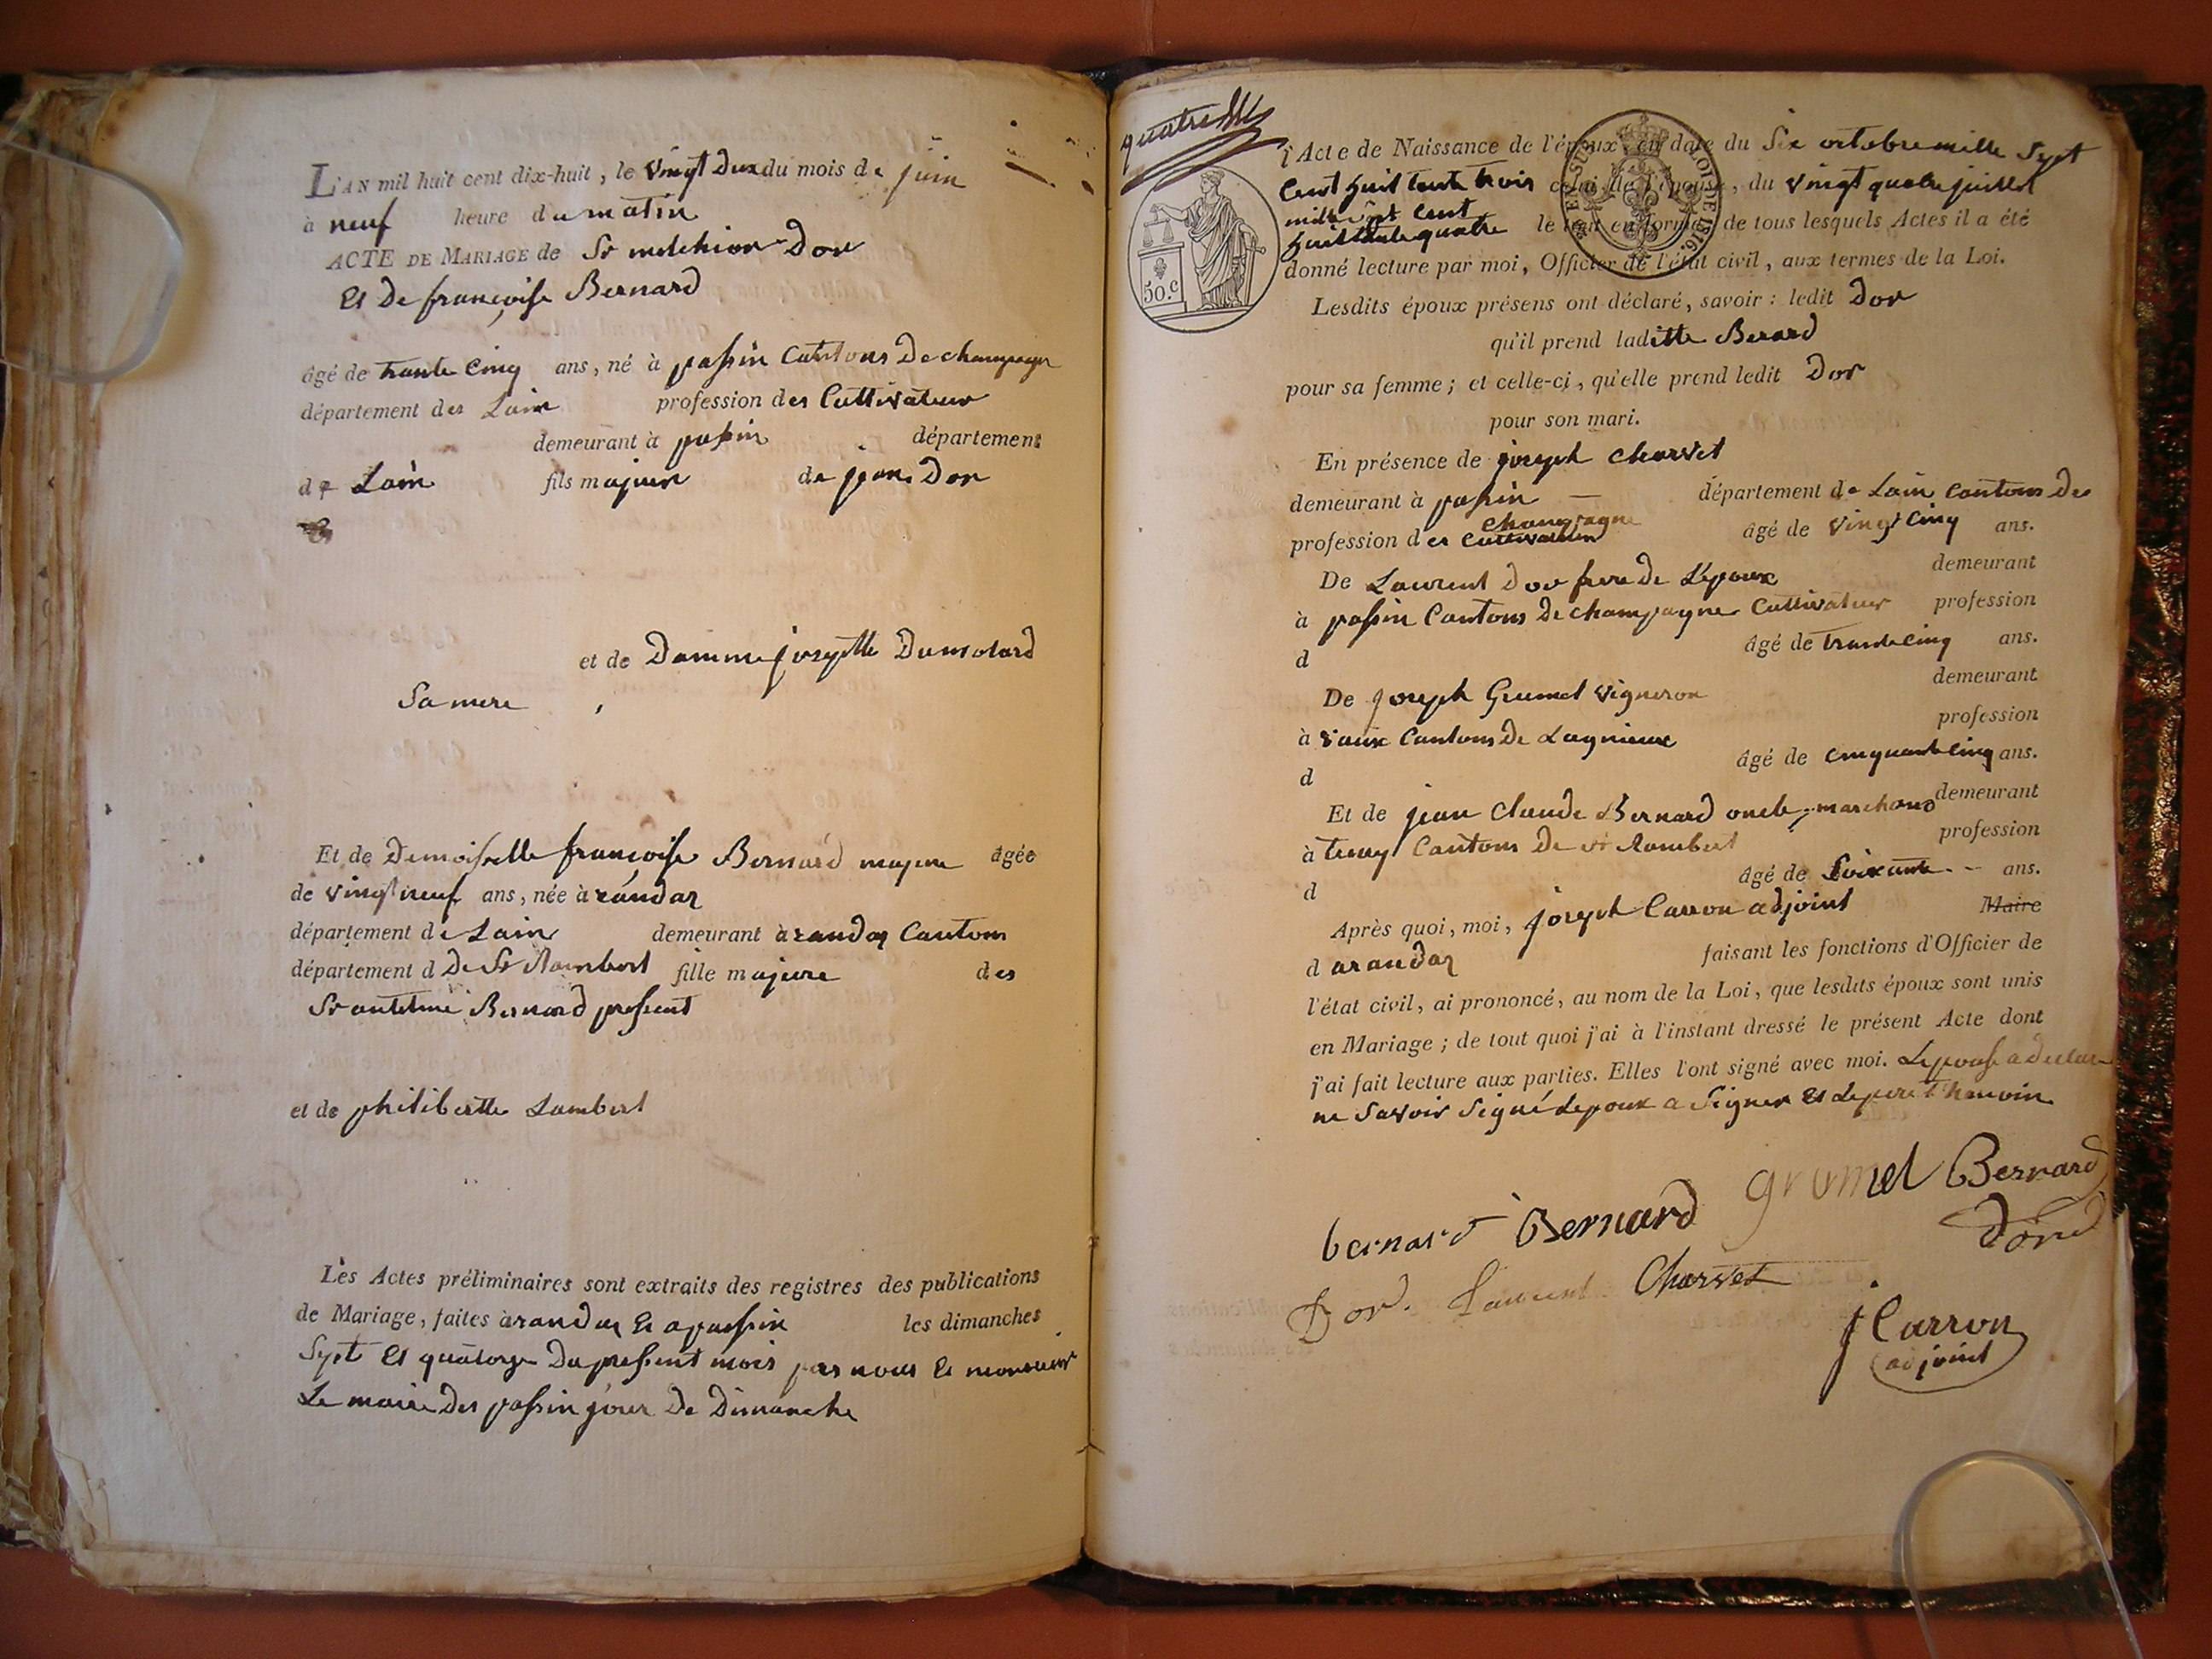 L'AN mil huit cent dix-huit, le vingt deux du mois de juin
à neuf heure du matin
ACTE DE MARIAGE de Sr melchior Dor
Et De françoise Bernard
âgé de trante cinq ans, né à passin Cantons De champagne
département des Lain profession des Cultivateur
demeurant à passin département
de Lain fils majeur de jean Dor
et de Damme josephtte Dumolard
Sa mere
Et de Demoiselle françoise Bernard majeure âgée
de vingt neuf ans, née à randas
département de Lain demeurant à randas Cantons
département d De St Rambert fille majeure des
Sr antelme Bernard present
et de philibertte Lambert
Les Actes préliminaires sont extraits des registres des publications
de Mariage, faites àrandas Et a passin les dimanches
Sept Et quatorze Du present mois par nous Et monsieur
Le maire Des passin jour De Dimanche
quatre
l'Acte de Naissance de l'époux, en date du Six octobre mille Sept
Cent huittente trois celui de l'épouse, du vingt quatre juillet
mille sept Cent
huittante quatre le tout en forme; de tous lesquels Actes il a été
donné lecture par moi, Officier de l'état civil, aux termes de la Loi.
LOI DE 1816.
50.c
Lesdits époux présens ont déclaré, savoir: ledit Dor
qu'il prend laditte Berard
pour sa femme; et celle-ci, qu'elle prend ledit Dor
pour son mari.
En présence de joseph charvet
demeurant à passin — département de Lain Cantons Des
champagne
profession des Cultivateur âgé de vingt Cinq ans.
De Laurent Dor frere De L'epoux demeurant
à passin Cantons De champagne Cultivateur profession
d âgé de trante cinq ans.
De joseph Grumel vigneron demeurant
à vaux Cantons De Lagnieux profession
d âgé de cinquante cinq ans.
Et de jean Claude Bernard oncle, marchand demeurant
à tenay Cantons De st Rambert profession
d âgé de Soixante -- ans.
Après quoi, moi, joseph Carron adjoint Maire
d arandas faisant les fonctions d'Officier de
l'état civil, ai prononcé, au nom de la Loi, que lesdits époux sont unis
en Mariage; de tout quoi j'ai à l'instant dressé le présent Acte dont
j'ai fait lecture aux parties. Elles l'ont signé avec moi. Lepouse a declare
ne Savoir Signé Lepoux a Signer Et Lepere
bernard Bernard grumel Bernard
Dor. Laurent Charvet
J Carron
adjoint